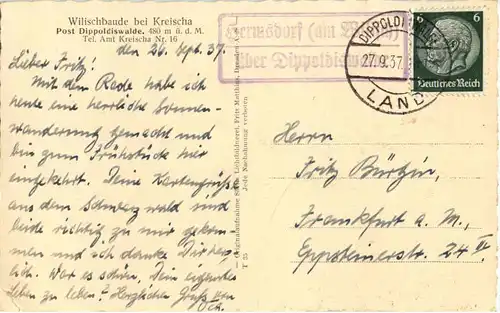 Wilischbaude bei Kreischa
Post Dippoldiswalde. 480 m ü. d. M.
Tel. Amt Kreischa Nr. 16
den 26. Sept. 37.
Lieber Fritz!
Mit dem Rade habe ich
heute eine herrliche Sonnen-
wanderung gemacht und
bin zum Frühstück hier
eingekehrt. Deine Kartengrüße
aus dem Schwarzwald sind
beide richtig zu mir gekom-
men und ich danke Dir herz-
lich. War es schön, Dein eigenes
Leben zu leben? Herzlichen Gruß von
Originalaufnahme
Lichtbildnerei, Fritz Matthies, Dresden
Jede Nachahmung verboten
T 35
Hermsdorf (am Wilisch)
über Dippoldiswalde
DIPPOLDISWALDE
27.9.37
LAND
6
6
Deutsches Reich
Herrn
Fritz Bürgin,
Frankfurt a. M.,
Eppsteinerstr. 24